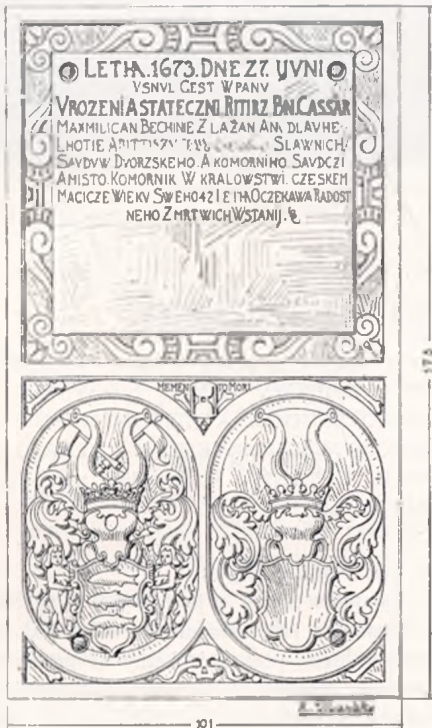 LETHA.1673.DNE 27. IJVNI
VSNVL CEST W PANV
VROZENI A STATECZNI RITIRZ BNI. CASSAR
MAXMILICAN BECHINE Z LAŽAN AN DLAVHE
LHOTIE SLAWNICH
SAVDVW DVORZSKEHO. A KOMORNIHO SAVDCZI
A MISTO. KOMORNIK W KRALOWSTWI. CZESKEM
MAGICZE WIEKV SWEHO 42 LETH A OCZEKAWA RADOST
NEHO Z MRTWICH WSTANIJ.
MEMENTO MORI
173
101